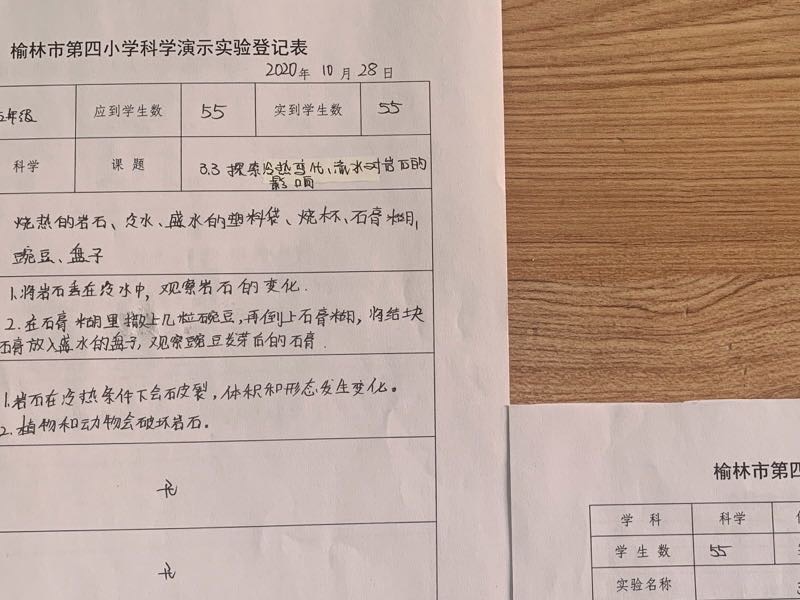 榆林市第四小学科学演示实验登记表
2020年 10月 28日
五年级 应到学生数 55 实到学生数 55
科学 课 题 3.3 探索冷热变化、流水对岩石的
影响
烧热的岩石、冷水、盛水的塑料袋、烧杯、石膏糊,
豌豆、盘子
1.将岩石丢在冷水中,观察岩石的变化.
2.在石膏糊里撒上几粒豌豆,再倒上石膏糊,将结块
石膏放入盛水的盘子,观察豌豆发芽后的石膏.
1.岩石在冷热条件下会破裂,体积和形态发生变化。
2.植物和动物会破坏岩石。
无
无
榆林市第四
学 科 科学
学 生 数 55
实验名称